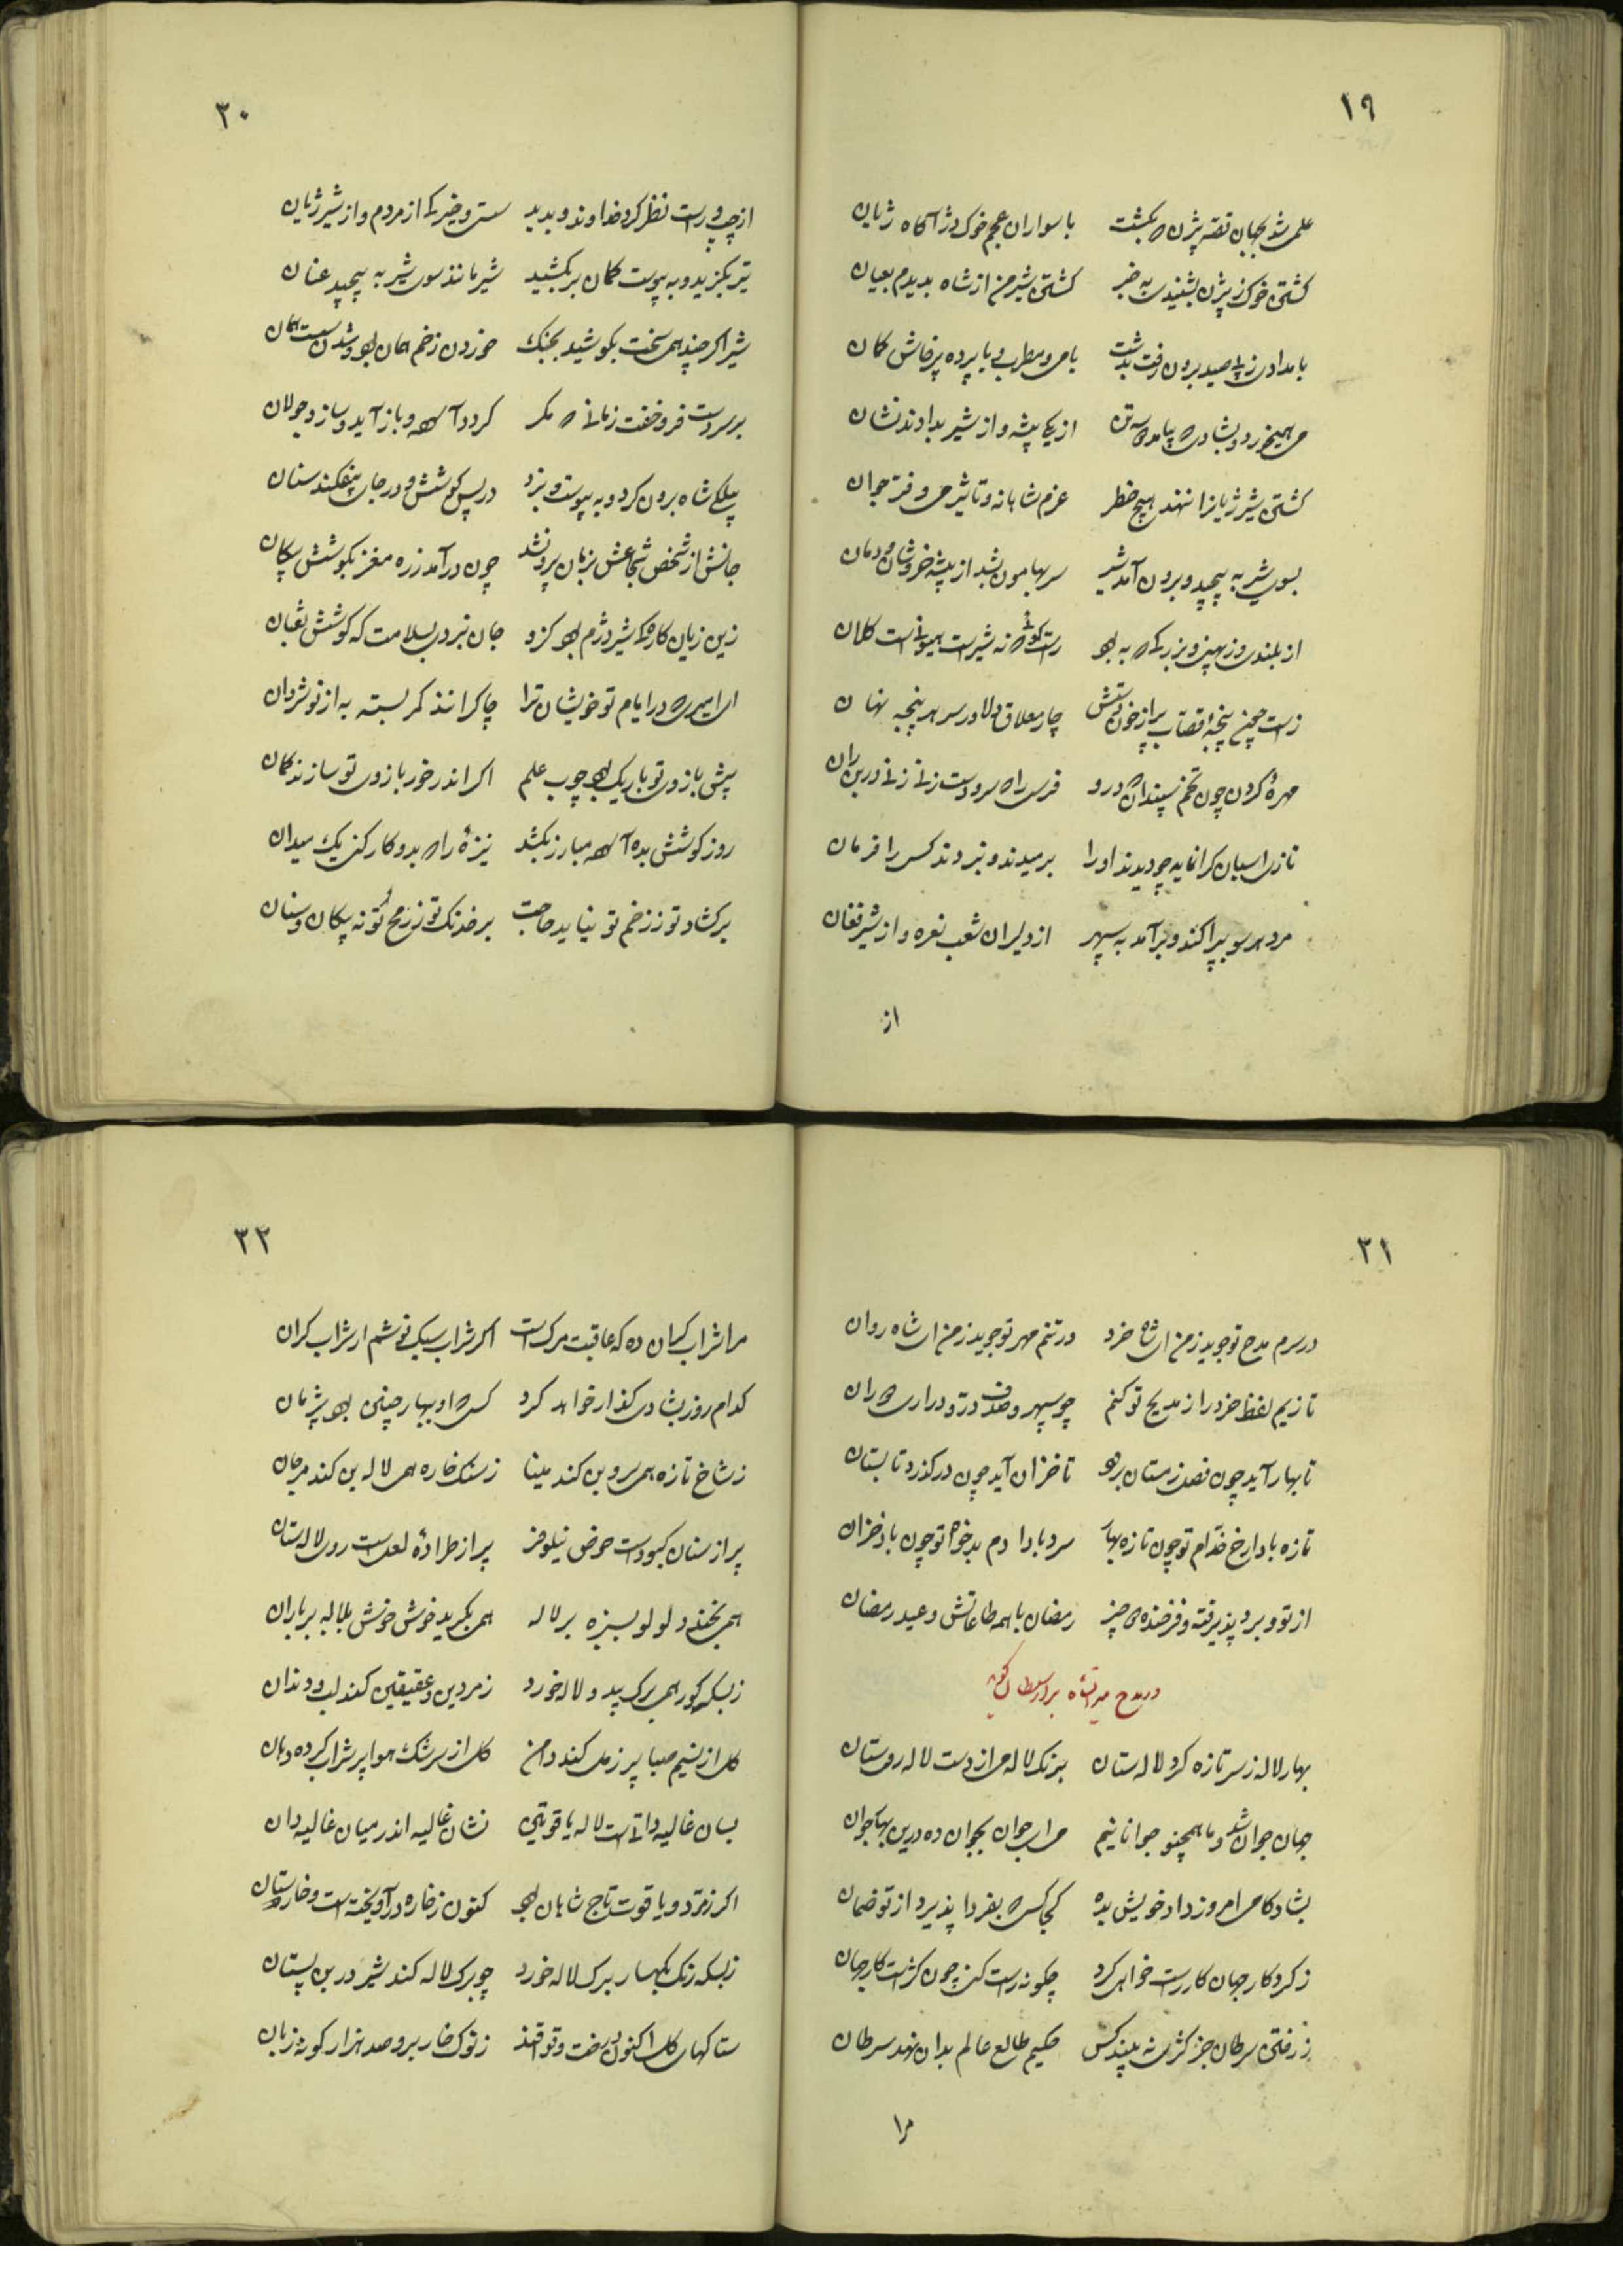 ۱۹
علمی شد بجهان قصه بیژن که بکشت با سواران عجم خوک دژآگاه ژیان
کشتن خوک ز بیژن بشنیدی به خبر کشتن شیر من از شاه بدیدم بعیان
بامدادی ز پی صید برون رفت بدشت با می و مطرب و با پرده پرخاش کنان
می همیخورد و بشادی که پیامد سه تن از یکی بیشه و از شیر بدادند نشان
کشتن شیر ژیانرا ننهد هیچ خطر عزم شاهانه و تأثیر می و فر جوان
بسوی شیر به پیچید و برون آمد شیر سر بهامون بشد از بیشه خروشان و دمان
از بلندی و ز پهنی و بزرگی که به بود راست گوئی که نه شیر است هیونی است کلان
راست چون پنجه قصاب پر از خون دستش چار معلاق دلاور سر هر پنجه نهان
مهره گردن چون تخم سپندان در و
تازی اسبان گرانمایه چو دیدند او را برمیدند و نبردند کسی را فرمان
مرد هر سو بپراکند و برآمد به سپهر از دلیران شعب نعره و از شیر فغان
از
۲۰
از چپ و راست نظر کرد خداوند و بدید سستی و خیرگی از مردم و از شیر ژیان
تیر بگزید و به پیوست کمان برکشید شیر مانند سوی شیر به پیچید عنان
شیر اگر چند همی سخت بکوشید بجنگ خوردن زخم همان بود و شدن سست همان
بر سر دست فرو خفت زمانی که مگر گردد آسوده و باز آید و سازد جولان
بیلکی شاه برون کرد و به پیوست و بزد در پس گوشش و در جای بیفکند سنان
جانش از شخص شجاعش بزمان بیرون شد چون درآمد زره مغز بگوشش پیکان
زین زیان کاری که شیر دژم بود کزو جان نبردی بسلامت که کوشش ثعبان
ای امیری که در ایام تو خویشان ترا چاکرانند کمر بسته به از نوشروان
پیش بازوی تو باریک بود چوب علم اگر اندر خور بازوی تو سازند کمان
روز کوشش بده آسوده مبارز بکشد نیزه را که بدو کار کنی یک میدان
برگشاد تو ز زخم تو نیاید حاجت بر خدنگ تو ز رمح تو نه پیکان و سنان
۲۱
در سرم مدح تو جوید ز من ای شاه خرد در تنم مهر تو جوید ز من ای شاه روان
تا زیم لفظ خرد را ز مدیح تو کنم چو سپهر و صدف در و دراری که ران
تا بهار آید چون فصل زمستان برود تا خزان آید چون در گذرد تابستان
تازه بادا رخ خدّام تو چون تازه بهار سرد بادا دم بدخواه تو چون باد خزان
از تو ویرد پذیرفته و فرخنده کی چیز رمضان با همه طاعاتش و عید رمضان
در مدح میرانشاه برادر سلطان گوید
بهار لاله ز سر تازه کرد لالستان برنگ لاله می از دست لاله روی ستان
جهان جوان شد و ما همچنو جوانانیم می ای جوان بجوان ده درین بهار جوان
بشادکامی امروز داد خویش بده کجا کسی که بفردا پذیرد از تو ضمان
ز گرد کار جهان کار راست خواهی کرد چگونه راست کنی چون کژ است کار جهان
ز رفتن سرطان جز کژی نه بیند کس حکیم طالع عالم بدان نهد سرطان
مرا
۲۲
مرا شراب گران ده که عاقبت مرگ است اگر شراب سبک نوشم ار شراب گران
کدام روز بشادی گذار خواهد کرد کسی که او بهار چنین بود پژمان
ز شاخ تازه همی سروبن کند مینا ز سنگ خاره همی لاله بن کند مرجان
پر از سنان کبود است حوض نیلوفر پر از طراده لعل است روی لالستان
همی بخندد لولو بسبزه بر لاله همی بگرید خوش خوش بلاله بر باران
ز بسکه گور همی برگ بید و لاله خورد زمردین و عقیقین کند لب و دندان
گل از نسیم صبا پر ز مل کند دامن گل از سرشک هوا پر شراب کرده دهان
بسان غالیه دانیست لاله یاقوتی نشان غالیه اندر میان غالیه دان
اگر زمرد و یاقوت تاج شاهان بود کنون ز خاره درآویخته است و خارستان
ز بسکه رنگ بکهسار برگ لاله خورد چو برگ لاله کند شیر در بن پستان
ستاکهای گل اکنون درخت وقواقند ز نوک خار برو صد هزار گونه زبان